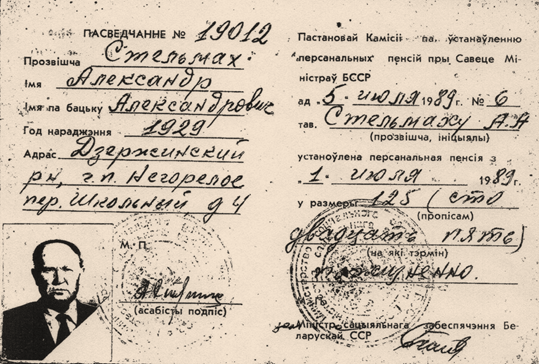 ПАСВЕДЧАННЕ № 19012
Прозвішча Стельмах
Імя Александр
Імя па бацьку Александрович
Год нараджэння 1929
Адрас Дзержинский
рн, г.п. Негорелое
пер. Школьный д 4
М. П.
(асабісты подпіс)
Пастановай Камісіі па ўстанаўленню
персанальных пенсій пры Савеце Мі-
ністраў БССР
ад „5 июля 1989г. № 6
тав. Стельмаху А.А
(прозвішча, ініцыялы)
устаноўлена персанальная пенсія з
„1. июля 1989г.
у размеры 125 (сто
(пропісам)
двадцать пять)
(на які тэрмін)
пожизненно.
Міністр сацыяльнага забеспячэння Бе-
ларускай ССР